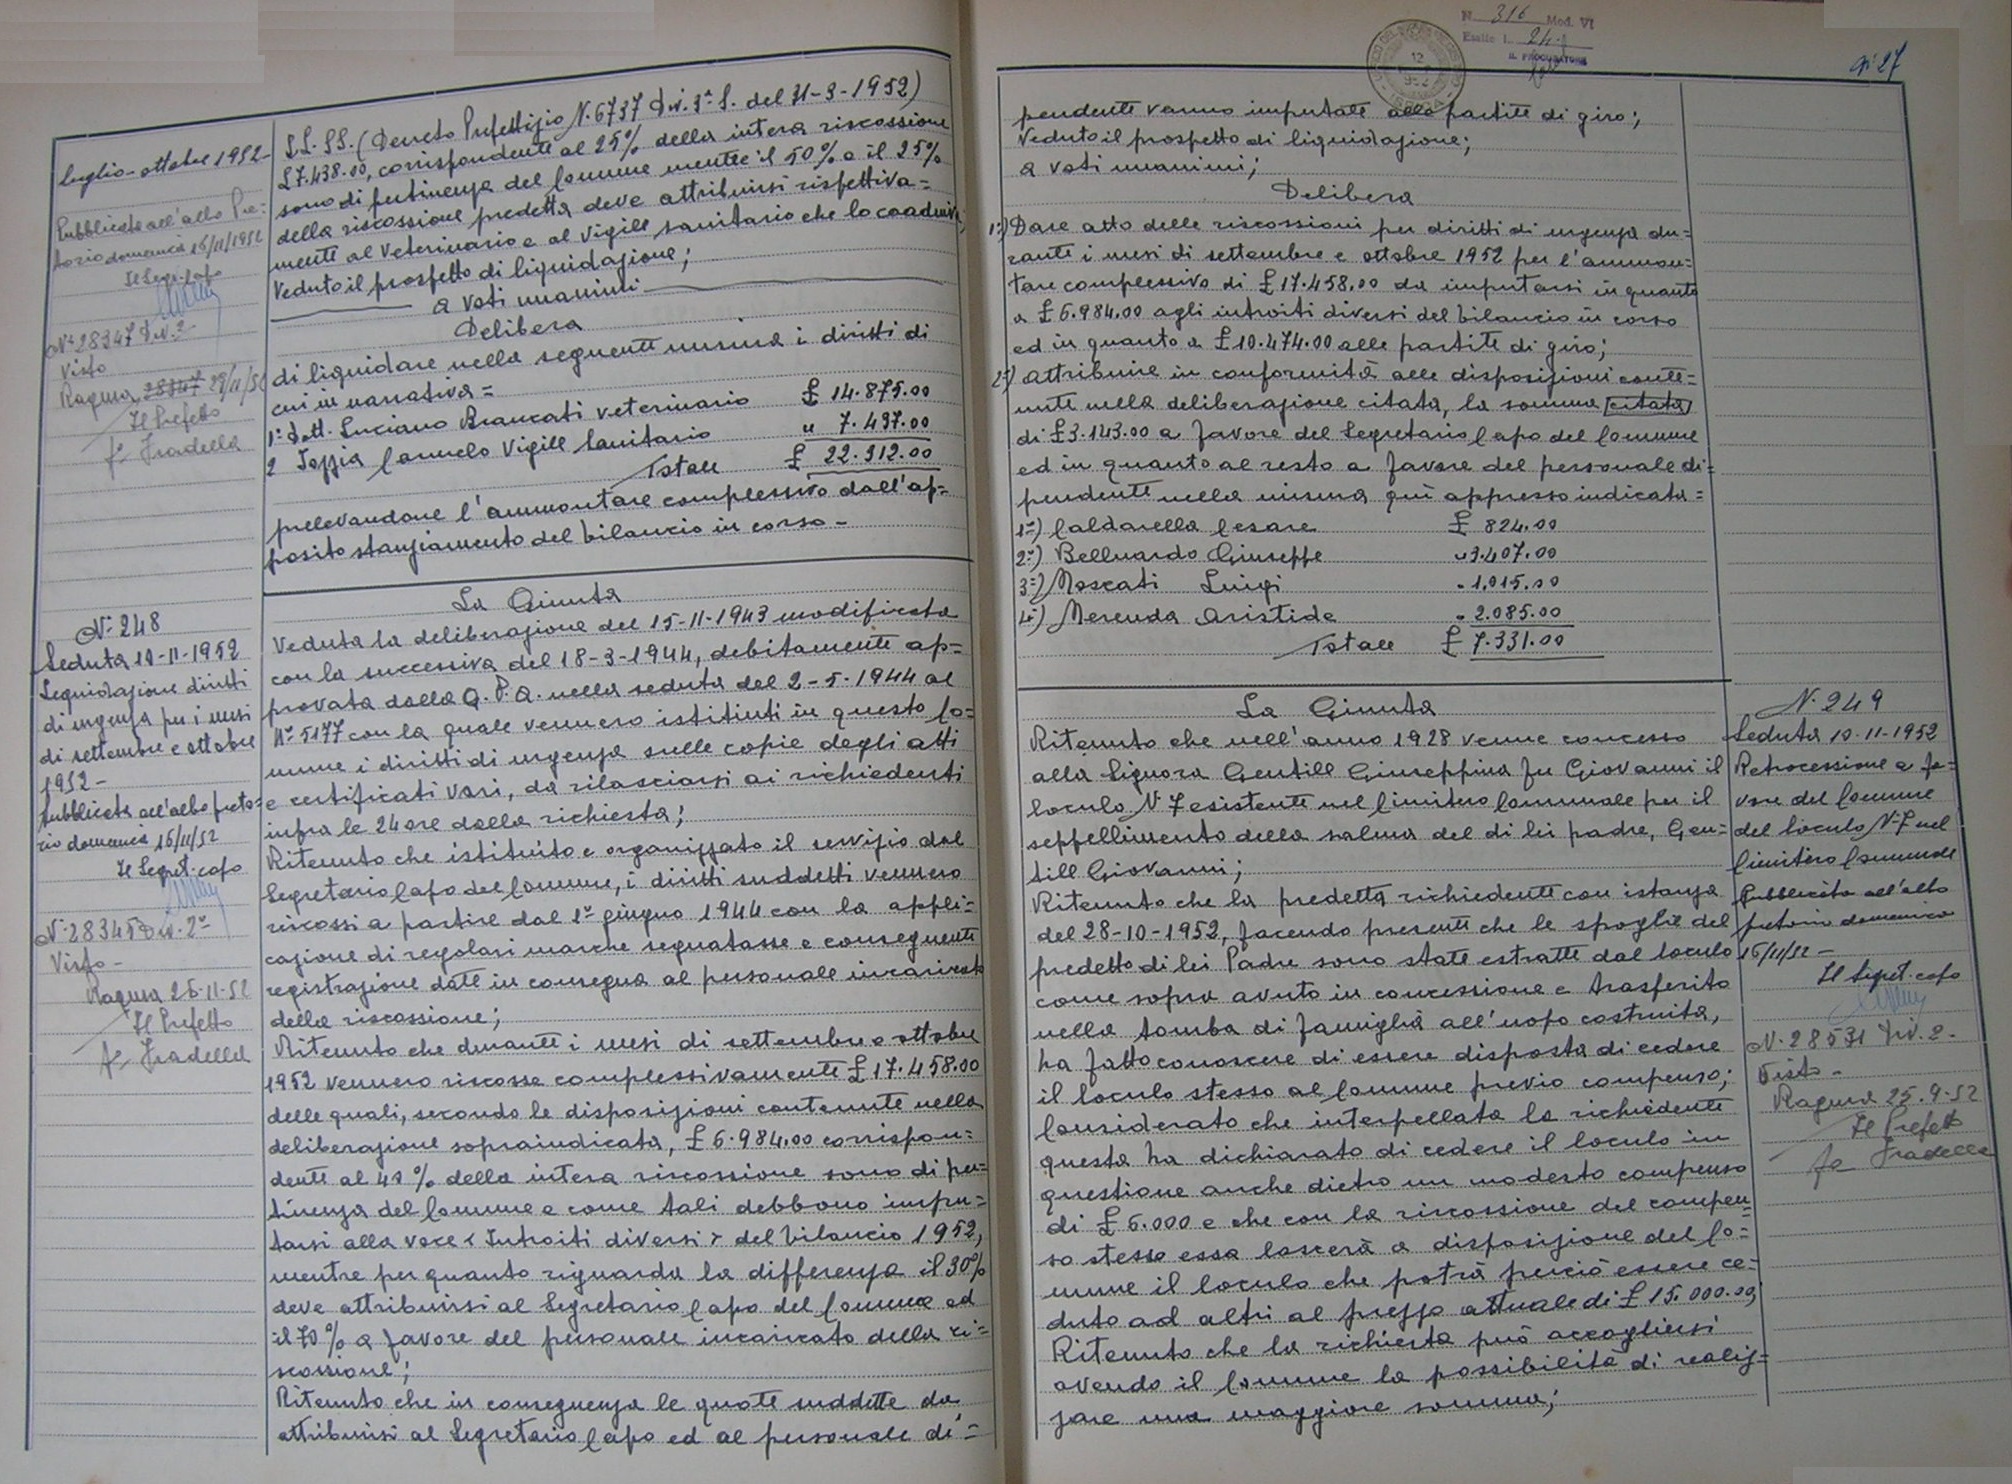 luglio-ottobre 1952-
Pubblicata all'albo Pre=
torio domenica 16/11/1952
Il Segr. capo
N° 28347 Div. 2ª
Visto
Ragusa 28347 29/11/52
Il Prefetto
f° Fradella
LL. SS. (Decreto Prefettizio N. 6737 Div. 3ª S. del 31-3-1952)
£ 7.438.00, corrispondente al 25% della intera riscossione
sono di pertinenza del Comune mentre il 50% e il 25%
della riscossione predetta deve attribuirsi rispettiva=
mente al Veterinario e al Vigile sanitario che lo coadiuva;
Veduto il prospetto di liquidazione;
a voti unanimi
Delibera
di liquidare nella seguente misura i diritti di
cui in narrativa =
1° Dott. Luciano Brancati Veterinario £ 14.875.00
2 Iozzia Carmelo Vigile Sanitario " 7.437.00
Totale £ 22.312.00
prelevandone l'ammontare complessivo dall'ap=
posito stanziamento del bilancio in corso -
N° 248
Seduta 10-11-1952
Liquidazione diritti
di urgenza per i mesi
di settembre e ottobre
1952-
Pubblicata all'albo preto=
rio domenica 16/11/52
Il Segret. capo
N° 28345 Div. 2ª
Visto -
Ragusa 25-11-52
Il Prefetto
f° Fradella
La Giunta
Veduta la deliberazione del 15-11-1943 modificata
con la successiva del 18-3-1944, debitamente ap=
provata dalla G. P. A. nella seduta del 2-5-1944 al
N° 5177 con la quale vennero istituiti in questo Co=
mune i diritti di urgenza sulle copie degli atti
e certificati vari, da rilasciarsi ai richiedenti
infra le 24 ore dalla richiesta;
Ritenuto che istituito e organizzato il servizio dal
Segretario Capo del Comune, i diritti suddetti vennero
riscossi a partire dal 1° giugno 1944 con la appli=
cazione di regolari marche segnatasse e conseguente
registrazione date in consegna al personale incaricato
della riscossione;
Ritenuto che durante i mesi di settembre e ottobre
1952 vennero riscosse complessivamente £ 17.458.00
delle quali, secondo le disposizioni contenute nella
deliberazione sopraindicata, £ 6.984.00 corrispon=
dente al 40% della intera riscossione sono di per=
tinenza del Comune e come tali debbono impu=
tarsi alla voce < Introiti diversi > del bilancio 1952,
mentre per quanto riguarda la differenza il 30%
deve attribuirsi al Segretario Capo del Comune ed
il 70% a favore del personale incaricato della ri=
scossione;
Ritenuto che in conseguenza le quote suddette da
attribuirsi al Segretario Capo ed al personale di=
N. 316 Mod. VI
Esatte L. 24
IL PROCURATORE
27
pendente vanno imputate alle partite di giro;
Veduto il prospetto di liquidazione;
a voti unanimi;
Delibera
1°) Dare atto delle riscossioni per diritti di urgenza du=
rante i mesi di settembre e ottobre 1952 per l'ammon=
tare complessivo di £ 17.458.00 da imputarsi in quanto
a £ 6.984.00 agli introiti diversi del bilancio in corso
ed in quanto a £ 10.474.00 alle partite di giro;
2°) Attribuire in conformità alle disposizioni conte=
nute nella deliberazione citata, la somma citata
di £ 3.143.00 a favore del Segretario Capo del Comune
ed in quanto al resto a favore del personale di=
pendente nella misura quì appresso indicata =
1°) Caldarella Cesare £ 824.00
2°) Belluardo Giuseppe " 3.407.00
3°) Moscati Luigi " 1.015.00
4°) Merenda Aristide " 2.085.00
Totale £ 7.331.00
La Giunta
Ritenuto che nell'anno 1928 venne concesso
alla Signora Gentile Giuseppina fu Giovanni il
loculo N° 7 esistente nel Cimitero Comunale per il
seppellimento della salma del di lei padre, Gen=
tile Giovanni;
Ritenuto che la predetta richiedente con istanza
del 28-10-1952, facendo presente che le spoglie del
predetto di lei Padre sono state estratte dal loculo
come sopra avuto in concessione e trasferito
nella tomba di famiglia all'uopo costruita,
ha fatto conoscere di essere disposta di cedere
il loculo stesso al Comune previo compenso;
Considerato che interpellata la richiedente
questa ha dichiarato di cedere il loculo in
questione anche dietro un modesto compenso
di £ 6.000 e che con la riscossione del compen=
so stesso essa lascerà a disposizione del Co=
mune il loculo che potrà perciò essere ce=
duto ad altri al prezzo attuale di £ 15.000.00;
Ritenuto che la richiesta può accogliersi
avendo il Comune la possibilità di realiz=
zare una maggiore somma;
N. 249
Seduta 10-11-1952
Retrocessione a fa=
vore del Comune
del loculo N° 7 nel
Cimitero Comunale
Pubblicata all'albo
pretorio domenica
16/11/52 -
Il Segret. capo
N. 28531 Div. 2ª
Visto -
Ragusa 25-9-52
Il Prefetto
fo Fradella